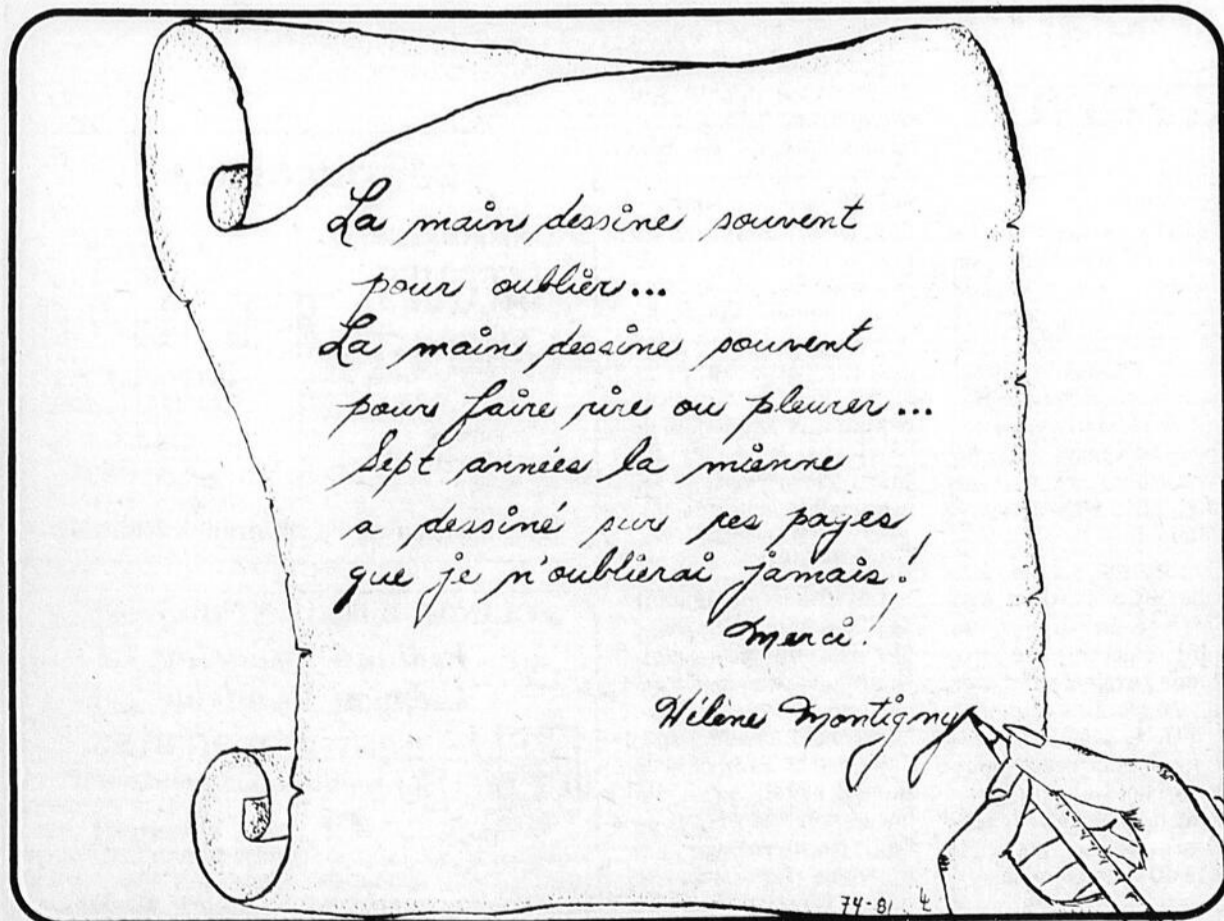 La main dessine souvent
pour oublier...
La main dessine souvent
pour faire rire ou pleurer...
Sept années la mienne
a dessiné sur ces pages
que je n'oublierai jamais!
Merci!
Hélène Montigny
74-81